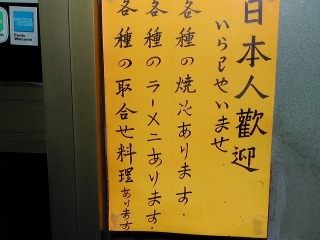 日本人歡迎
いらしやいませ
各種の焼そあります.
各種のラーメニあります.
各種の取合せ料理あります
Cards
Welcome